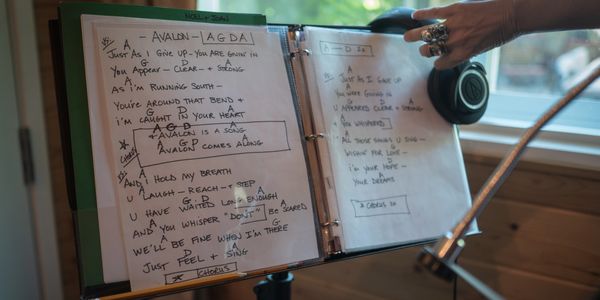 NOEL + JOAN
- AVALON - AGDA
V1. A
JUST AS I GIVE UP - YOU ARE GIVIN' IN
G D A
YOU APPEAR - CLEAR - + STRONG
A
AS I'M RUNNING SOUTH -
YOU'RE AROUND THAT BEND +
G D A
I'M CAUGHT IN YOUR HEART
A G D A
* CHORUS
+ AVALON IS A SONG
A G D A
AVALON COMES ALONG
V2. A
AND I HOLD MY BREATH
G D A
U LAUGH - REACH - + STEP
A
U HAVE WAITED LONG ENOUGH
G D A
AND YOU WHISPER "DON'T" BE SCARED
A G
WE'LL BE FINE WHEN I'M THERE
D A
JUST FEEL + SING
* CHORUS
A
V3. A
JUST AS I GIVE UP
YOU WERE GIVING IN
G D A
U APPEARED CLEAR & STRONG
A
+ YOU WHISPERED
ALL THOSE THINGS U SING -
WISHIN' FOR LOVE -
I'M YOUR HOPE -
YOUR DREAMS
* CHORUS